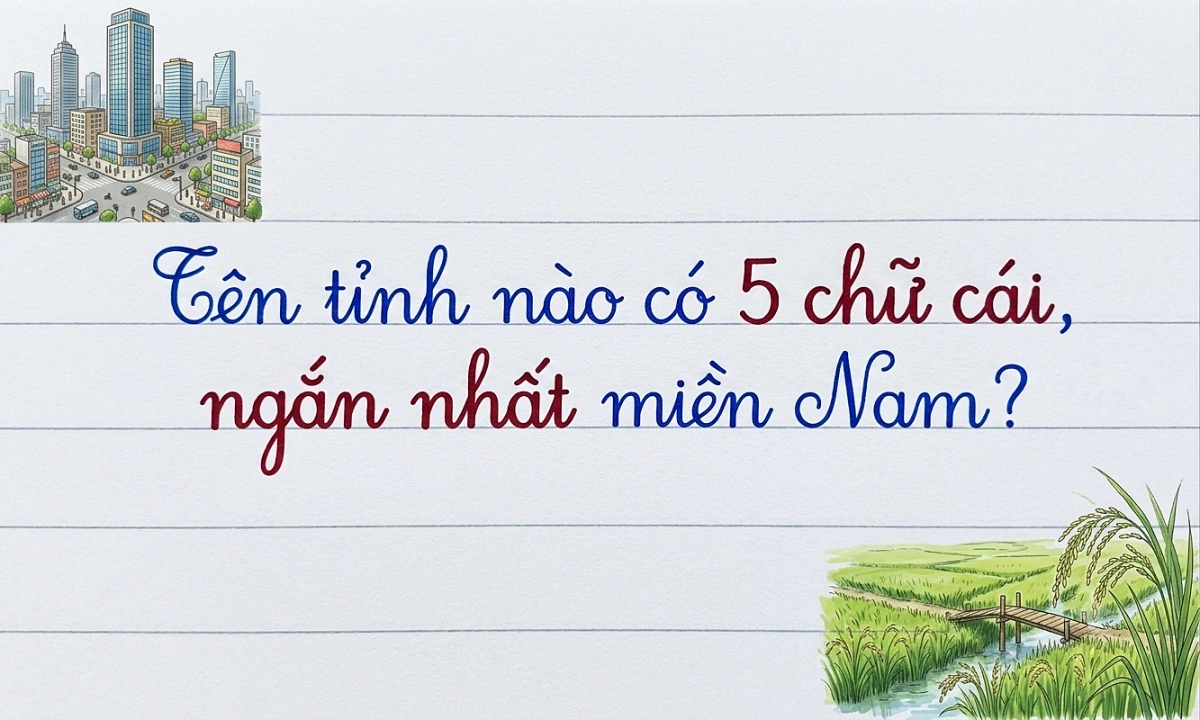 Tên tỉnh nào có 5 chữ cái,
ngắn nhất miền Nam?